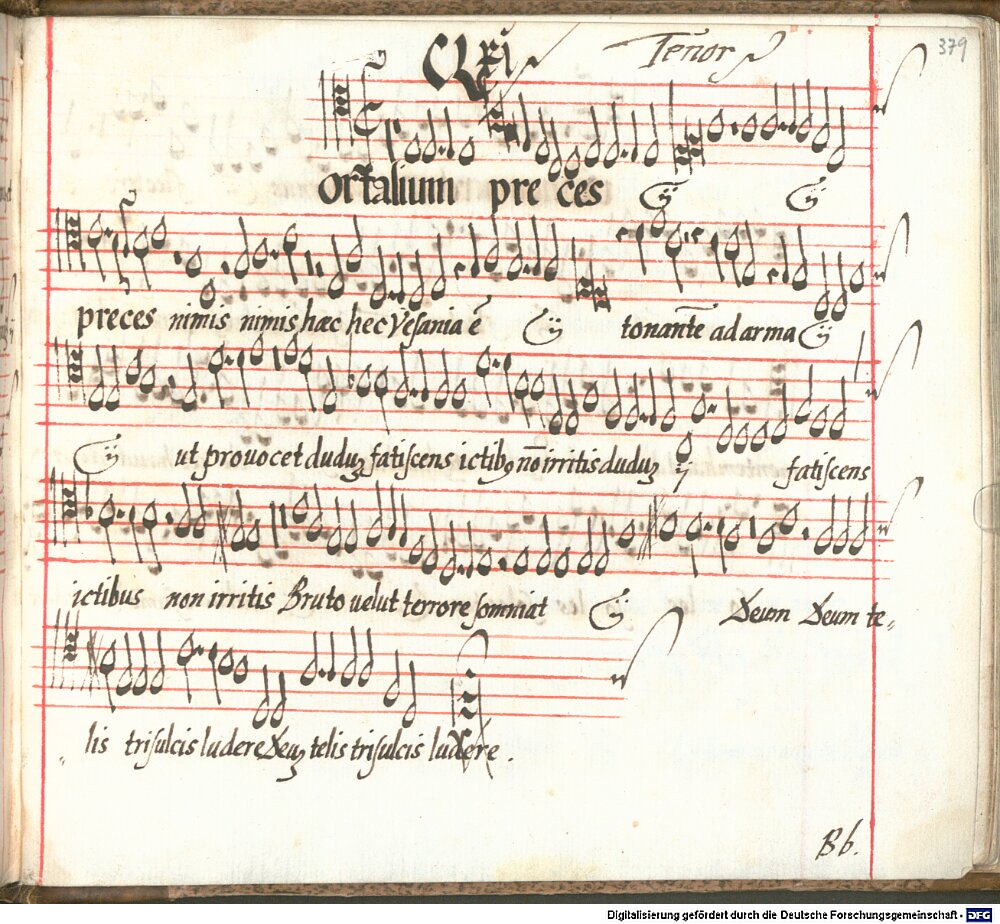 CLxi Tenor 379
ortalium preces ij ij
preces nimis nimis hæc hec vesania ē ij tonant̄e ad arma ij
ij ut provocet duduꝫ fatiscens ictibꝫ nō irritis duduꝫ ij fatiscens
ictibus non irritis Bruto velut terrore somniat ij Deum Deum te„
„lis trisulcis ludere Deuꝫ telis trisulcis ludere.
Bb.
Digitalisierung gefördert durch die Deutsche Forschungsgemeinschaft - DFG